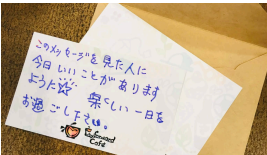 このメッセージを見た人に
今日いいことがあります
ように☆ 楽しい一日を
お過ごし下さい。
Payforward
Café